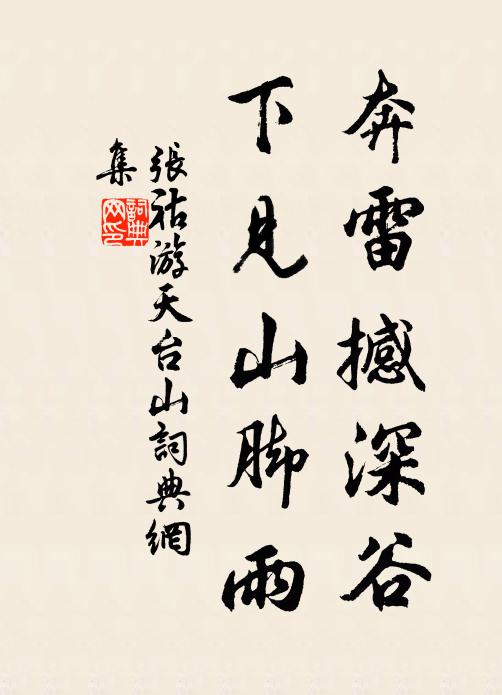 奔雷撼深谷
下見山脚雨
張祜游天台山詞典網
集
詞典网印